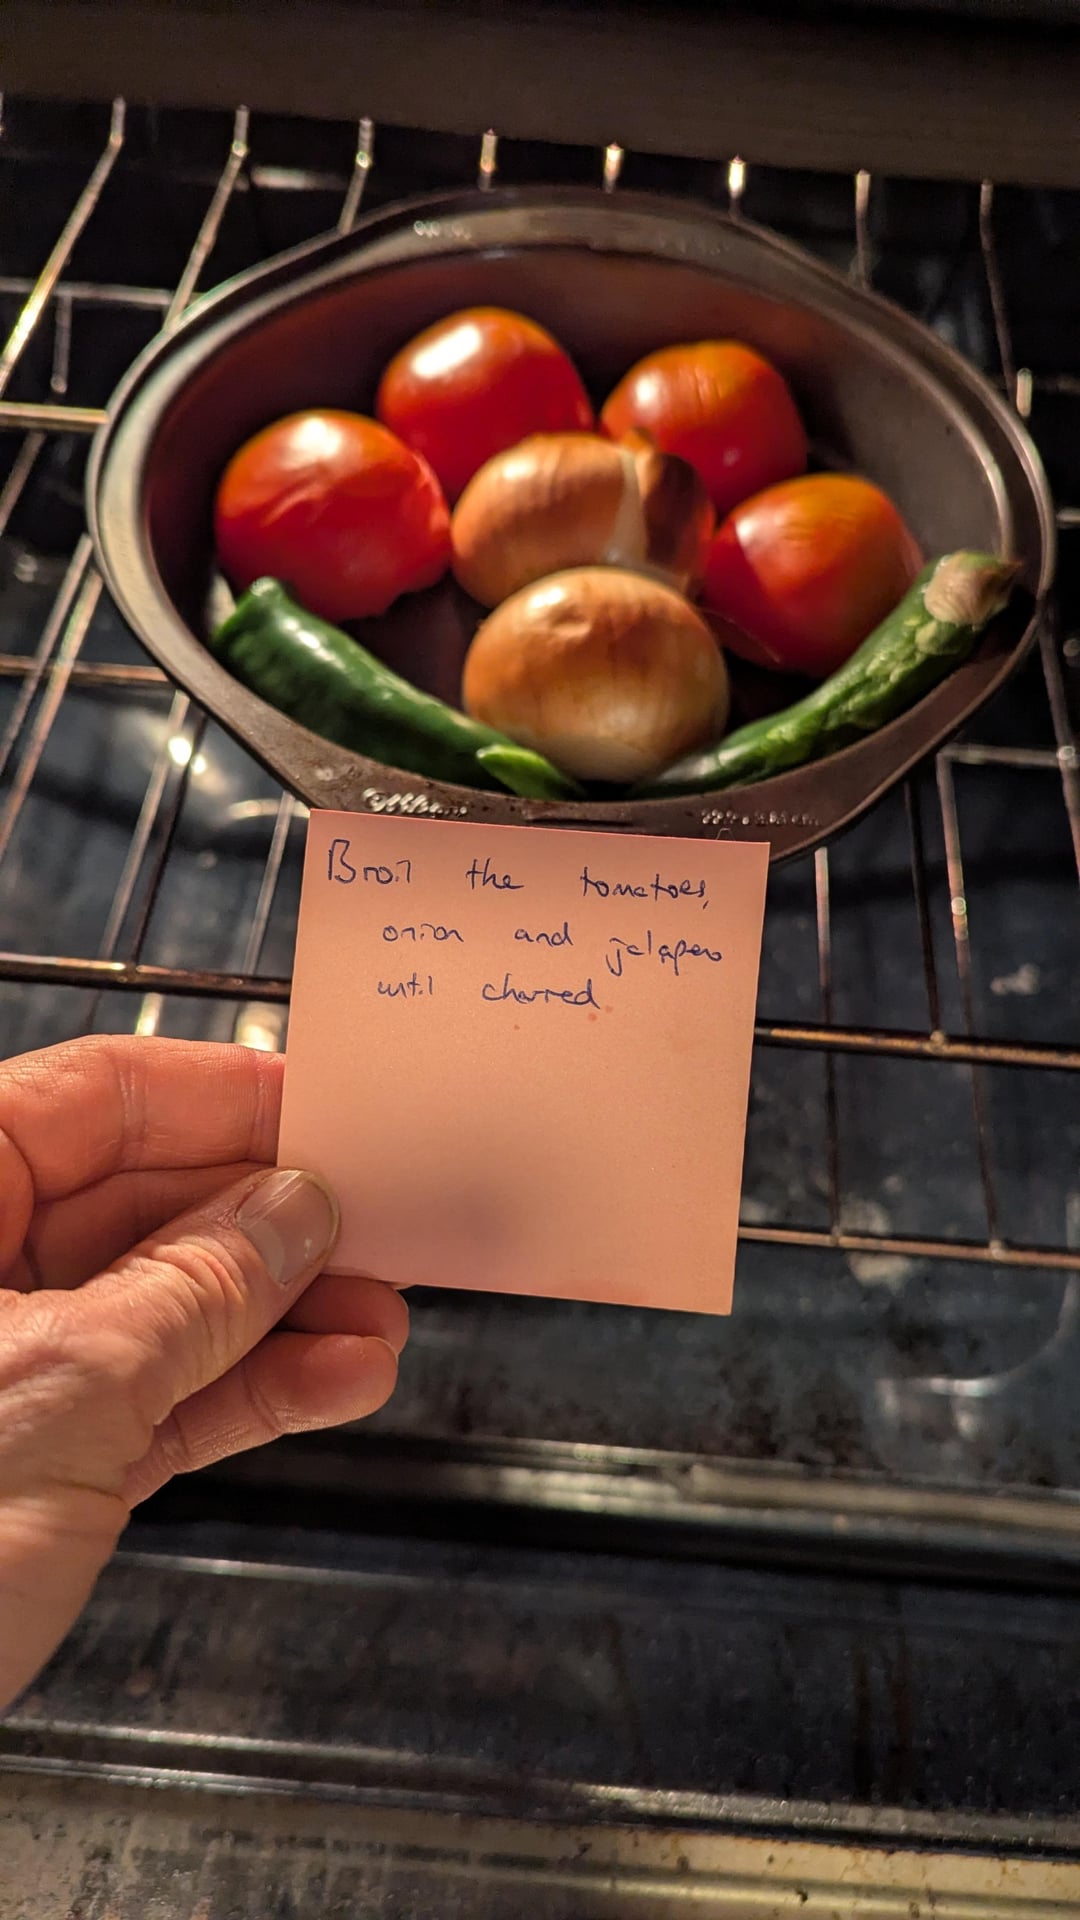 Broil the tomatoes,
onion and jalapeno
until charred